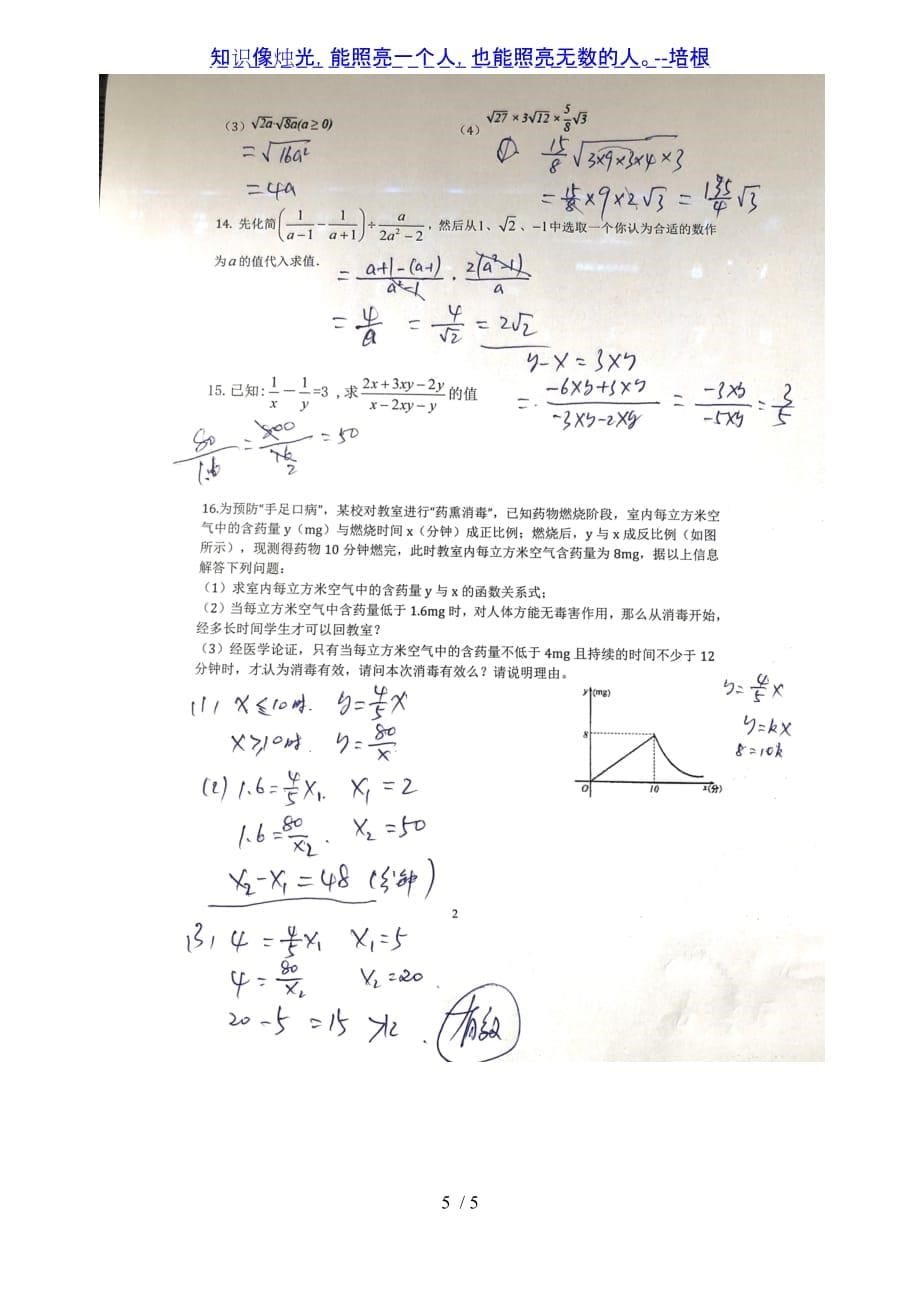 知识像烛光，能照亮一个人，也能照亮无数的人。--培根
（3）√2a·√8a(a≥0)
（4）√27×3√12×5/8√3
=√16a²
=4a
① 15/8√3×9×3×4×3
=15/8×9×2√3=135/4√3
14. 先化简(1/(a-1)-1/(a+1))÷a/(2a²-2)，然后从1、√2、-1中选取一个你认为合适的数作
为a的值代入求值.
=(a+1-(a-1))/(a²-1)·2(a²-1)/a
=4/a=4/√2=2√2
y-x=3xy
15. 已知:1/x-1/y=3，求(2x+3xy-2y)/(x-2xy-y)的值
=(-6xy+3xy)/(-3xy-2xy)=(-3xy)/(-5xy)=3/5
80/1.6=800/16=50
2
16.为预防"手足口病"，某校对教室进行"药熏消毒"，已知药物燃烧阶段，室内每立方米空
气中的含药量 y（mg）与燃烧时间 x（分钟）成正比例；燃烧后，y 与 x 成反比例（如图
所示），现测得药物 10 分钟燃完，此时教室内每立方米空气含药量为 8mg，据以上信息
解答下列问题：
（1）求室内每立方米空气中的含药量 y 与 x 的函数关系式；
（2）当每立方米空气中含药量低于 1.6mg 时，对人体方能无毒害作用，那么从消毒开始，
经多长时间学生才可以回教室？
（3）经医学论证，只有当每立方米空气中的含药量不低于 4mg 且持续的时间不少于 12
分钟时，才认为消毒有效，请问本次消毒有效么？请说明理由。
(1) x≤10时. y=4/5x
x≥10时. y=80/x
(2) 1.6=4/5x₁. x₁=2
1.6=80/x₂. x₂=50
x₂-x₁=48(分钟)
(3) 4=4/5x₁ x₁=5
4=80/x₂ x₂=20.
20-5=15>12. 有效
y(mg)
8
O 10 x(分)
y=4/5x
y=kx
8=10k
2
5 / 5